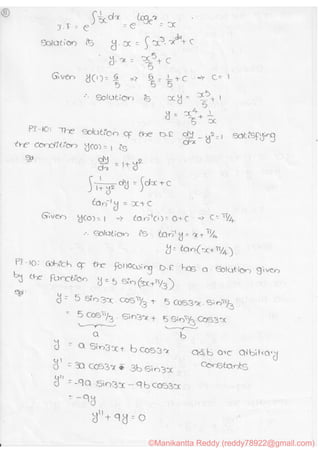 ⑪
I.F = e^∫(1/x)dx = e^log x = x
Solution is y·x = ∫ x³·x dx + c
y·x = x⁵/5 + c
Given y(1) = 6/5 ⇒ 6/5 = 1/5 + c ⇒ c = 1
∴ Solution is xy = x⁵/5 + 1
y = x⁴/5 + 1/x
PI-10: The solution of the D.E dy/dx - y² = 1 satisfying
the condition y(0) = 1 is
dy/dx = 1 + y²
∫ 1/(1+y²) dy = ∫dx + c
tan⁻¹y = x + c
Given y(0) = 1 → tan⁻¹(1) = 0 + c → c = π/4
∴ solution is tan⁻¹y = x + π/4
y = tan(x + π/4)
PI-10: Which of the following D.E has a solution given
by the function y = 5 sin(3x + π/3)
y = 5 sin3x cosπ/3 + 5 cos3x. sinπ/3
= 5 cosπ/3. sin3x + 5 sinπ/3 cos3x
a b
y = a sin3x + b cos3x a & b are arbitrary
y' = 3a cos3x - 3b sin3x constants
y'' = -9a sin3x - 9b cos3x
= -9y
y'' + 9y = 0
©Manikantta Reddy (reddy78922@gmail.com)